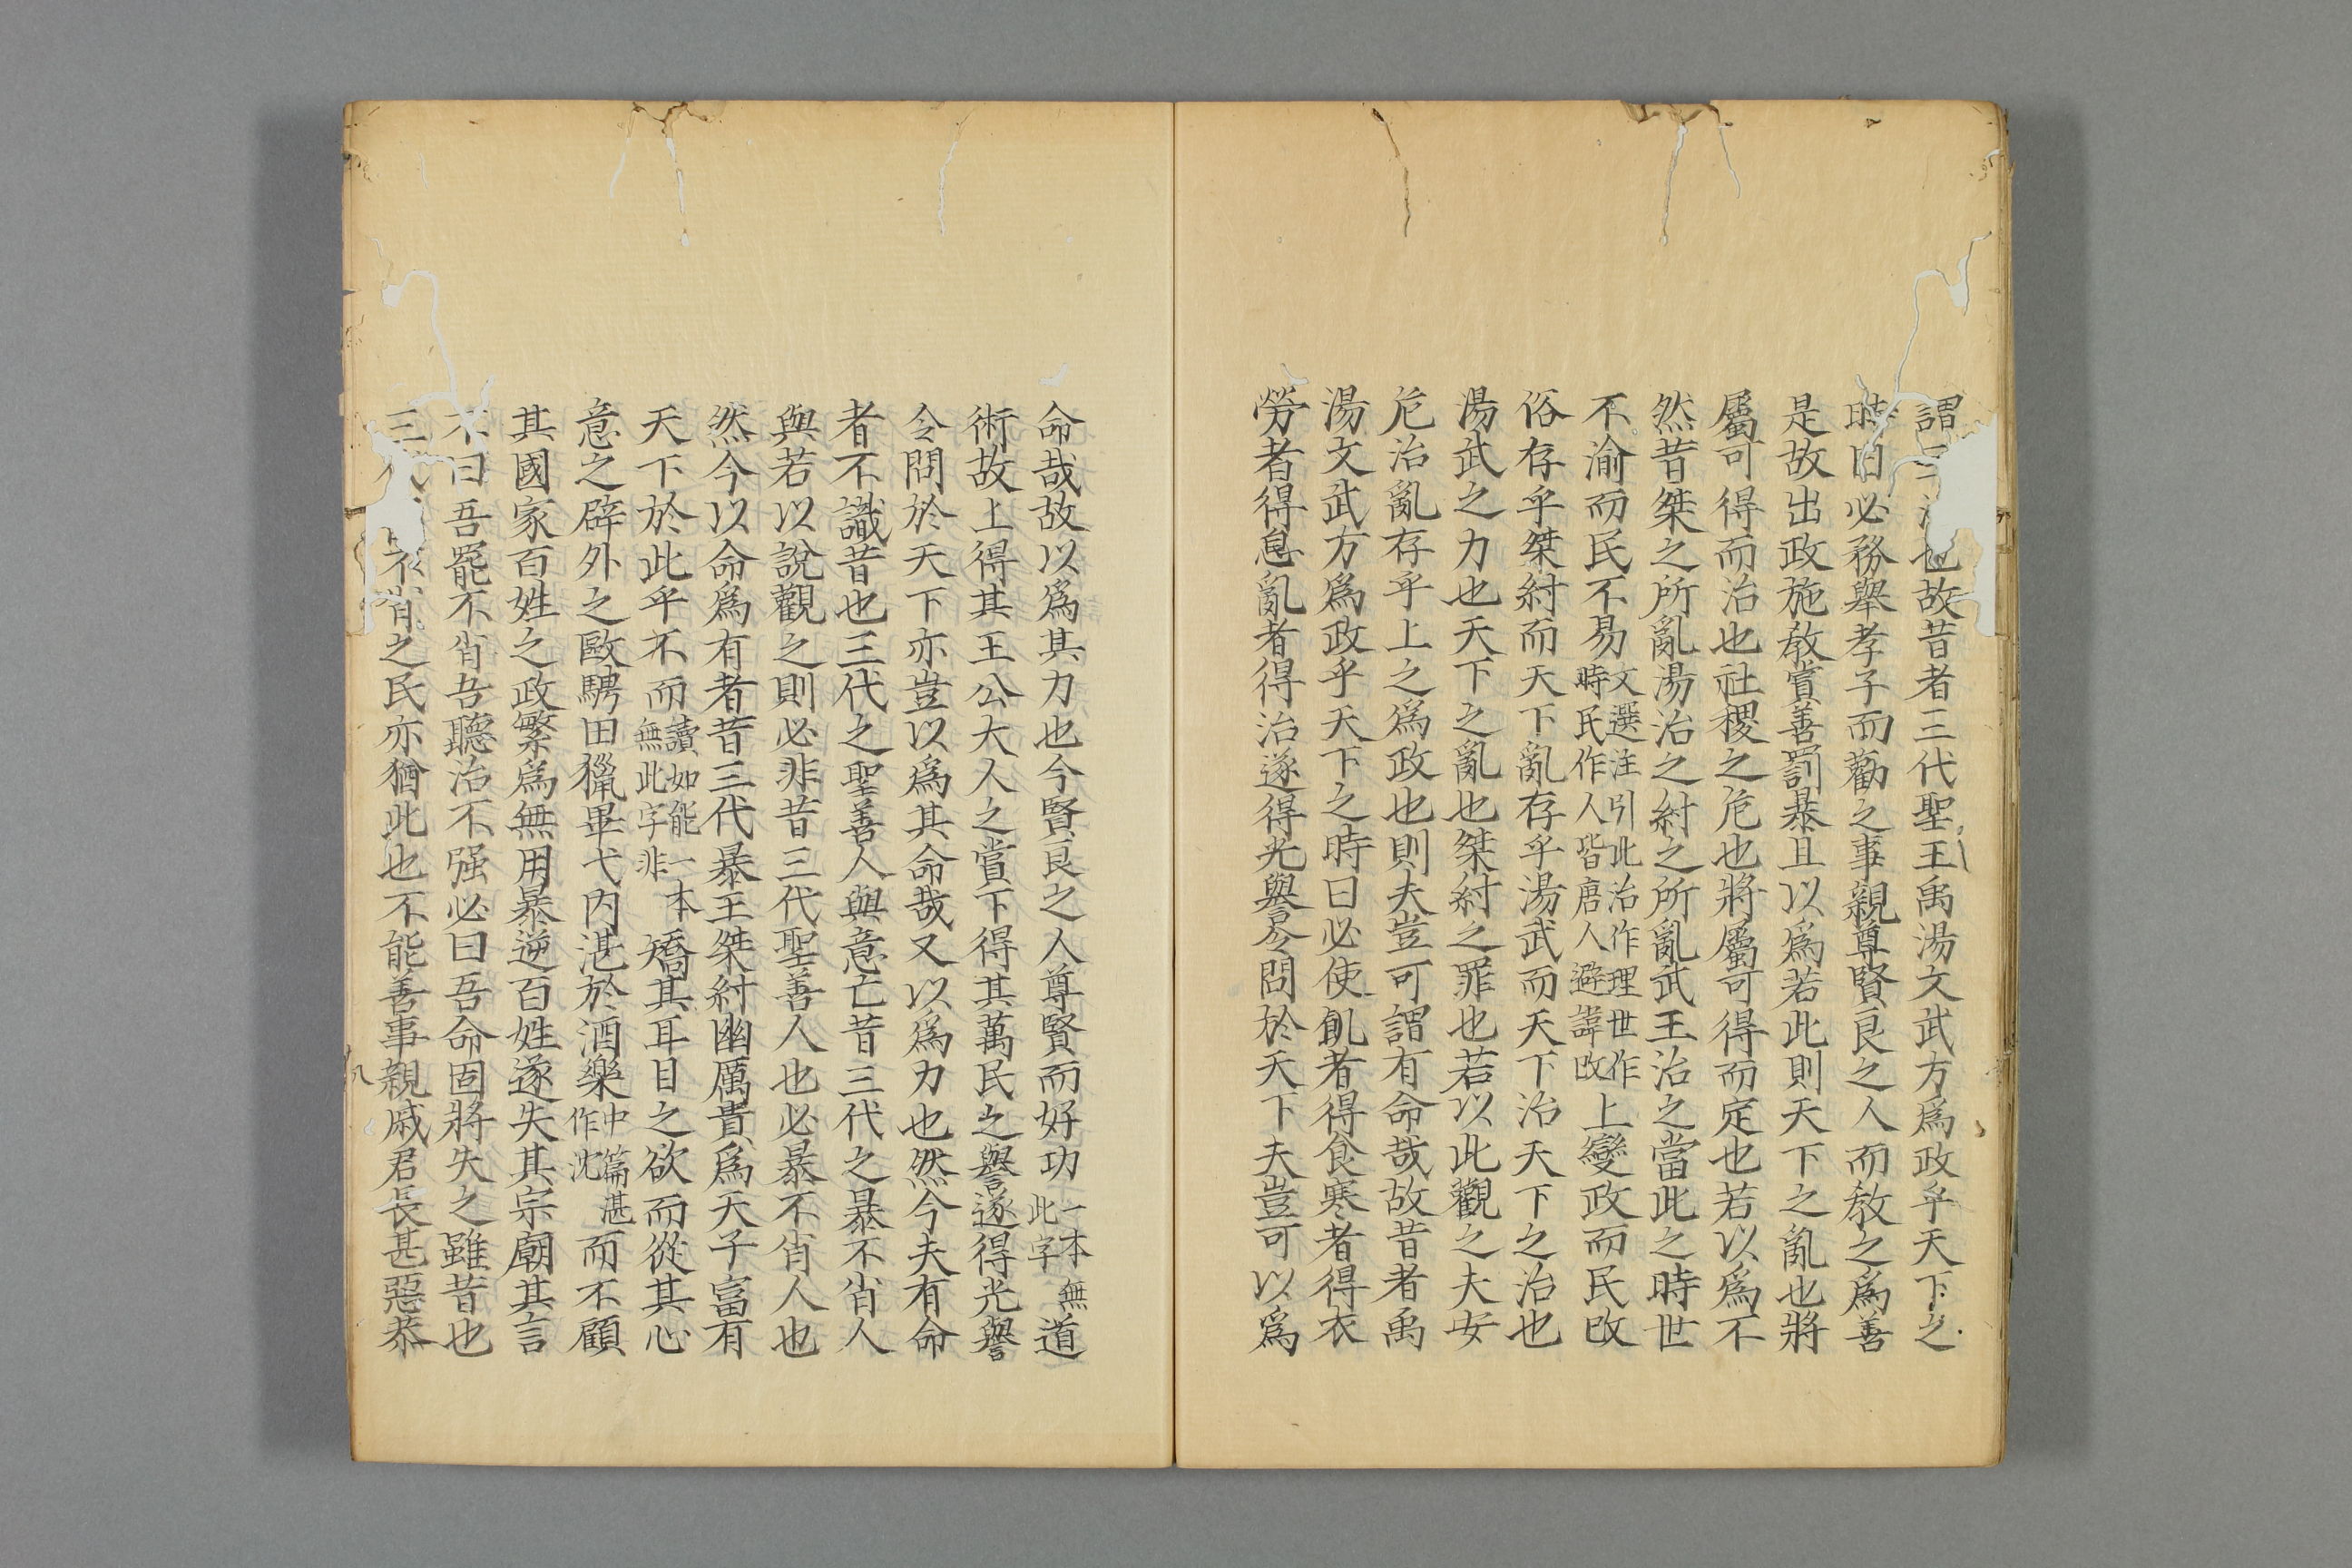 謂三法也故昔者三代聖王禹湯文武方爲政乎天下之
時曰必務舉孝子而勸之事親尊賢良之人而教之爲善
是故出政施教賞善罰暴且以爲若此則天下之亂也將
屬可得而治也社稷之危也將屬可得而定也若以爲不
然昔桀之所亂湯治之紂之所亂武王治之當此之時世
不渝而民不易文選注引此治作理世作時民作人皆唐人避諱改上變政而民改
俗存乎桀紂而天下亂存乎湯武而天下治天下之治也
湯武之力也天下之亂也桀紂之罪也若以此觀之夫安
危治亂存乎上之爲政也則夫豈可謂有命哉故昔者禹
湯文武方爲政乎天下之時曰必使飢者得食寒者得衣
勞者得息亂者得治遂得光譽令問於天下夫豈可以爲
命哉故以爲其力也今賢良之人尊賢而好功一本無此字道
術故上得其王公大人之賞下得其萬民之譽遂得光譽
令問於天下亦豈以爲其命哉又以爲力也然今夫有命
者不識昔也三代之聖善人與意亡昔三代之暴不肖人
與若以說觀之則必非昔三代聖善人也必暴不肖人也
然今以命爲有者昔三代暴王桀紂幽厲貴爲天子富有
天下於此乎不而讀如能一本無此字非矯其耳目之欲而從其心
意之辟外之歐騁田獵畢弋內湛於酒樂中篇湛作沈而不顧
其國家百姓之政繁爲無用暴逆百姓遂失其宗廟其言
不曰吾罷不肖吾聽治不强必曰吾命固將失之雖昔也
三代不肖之民亦猶此也不能善事親戚君長甚惡恭